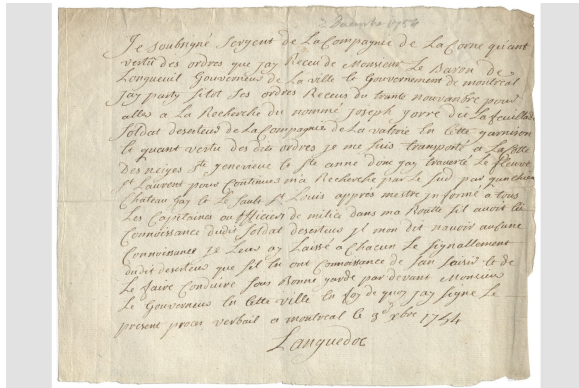 2 Decembre 1754
Je soubsigné Sergent de La Compagnie de La Corne qu'ant
vertu des ordres que Jay Receu de Monsieur Le Baron de
Longueuil Gouverneur de La ville et Gouvernement de montreal
Jay party sitot ses ordres Receus du trante nouvanbre pour
aller a La Recherche du nommé Joseph yorre dit La feuillade
Soldat deserteur de La Compagnie de La valtrie En Cette garnison
et quant vertu des dits ordres je me suis transporté a La Cotte
des neiges Ste genevieve et Ste anne donc jay traversé Le fleuve
St Laurent pour Continuer ma Recherche par Le Sud par
Chateau gay et Le Sault St Louis apprés mestre jnformé à tous
Les Capitaines ou officiers de milice dans ma Routte sil avoit Eu
Connoissance dudit Soldat deserteur jl mon dit navoir aubune
Connoissance je Leur ay Laissé à Chacun Le seignallement
dudit deserteur que sil En ont Connoissance de san saisir et de
Le faire Conduire sous Bonne garde par devant Monsieur
Le Gouverneur En Cette ville En foy de quoy jay signé Le
present procés verbail a montreal le 3e xbre 1754
Languedoc